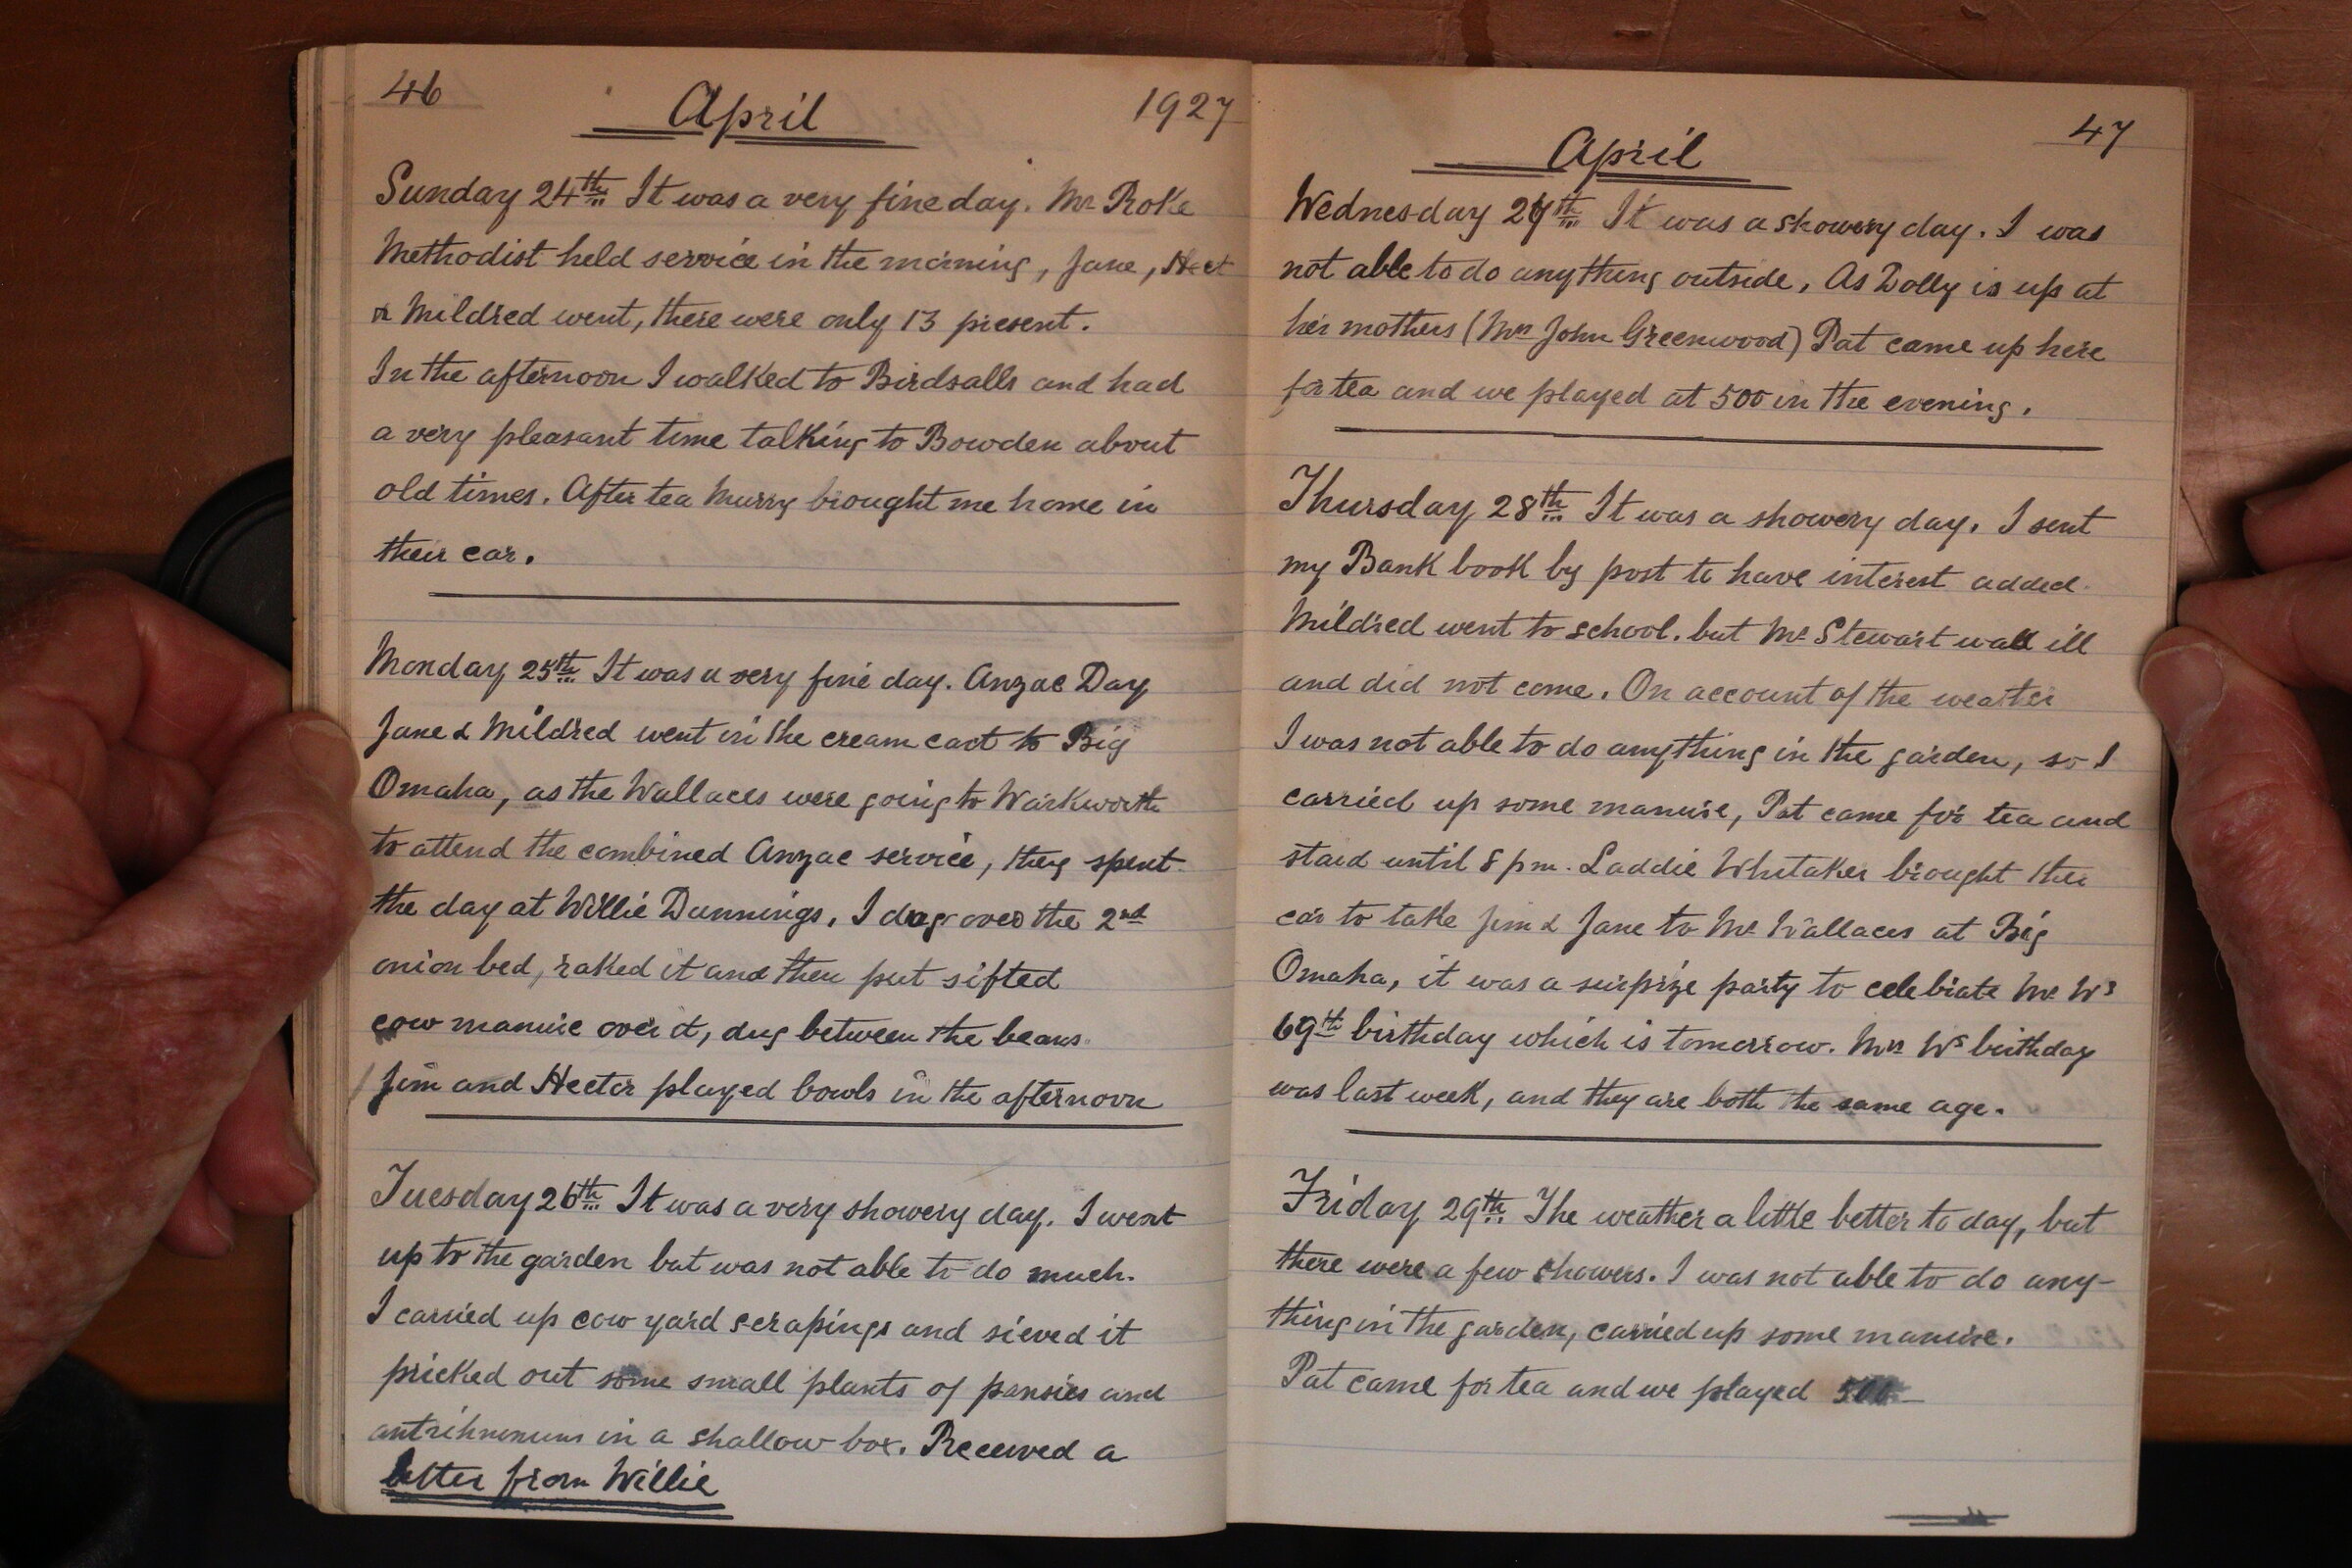 46
April
1927
Sunday 24th It was a very fine day. Mr Roke
Methodist held service in the morning, Jane, Hect
& Mildred went, there were only 13 present.
In the afternoon I walked to Birdsalls and had
a very pleasant time talking to Bowden about
old times. After tea Murry brought me home in
their car.
Monday 25th It was a very fine day. Anzac Day
Jane & Mildred went in the cream cart to Big
Omaha, as the Wallaces were going to Warkworth
to attend the combined Anzac service, they spent
the day at Willie Dunnings. I dug over the 2nd
onion bed, raked it and then put sifted
cow manure over it, dug between the beans.
Jim and Hector played bowls in the afternoon
Tuesday 26th It was a very showery day. I went
up to the garden but was not able to do much.
I carried up cow yard scrapings and sieved it
pricked out some small plants of pansies and
antrihnmums in a shallow box. Received a
letter from Willie
47
April
Wednesday 27th It was a showery day. I was
not able to do anything outside, As Dolly is up at
her mothers (Mrs John Greenwood) Pat came up here
for tea and we played at 500 in the evening.
Thursday 28th It was a showery day. I sent
my Bank book by post to have interest added.
Mildred went to school. but Mr Stewart was ill
and did not come. On account of the weather
I was not able to do anything in the garden, so I
carried up some manure, Pat came for tea and
staid until 8 pm. Laddie Whitaker brought their
car to take Jim & Jane to Mr Wallaces at Big
Omaha, it was a surprize party to celebrate Mr Ws
69th birthday which is tomorrow. Mrs Ws birthday
was last week, and they are both the same age.
Friday 29th The weather a little better to day, but
there were a few showers. I was not able to do any-
thing in the garden, carried up some manure.
Pat came for tea and we played 500